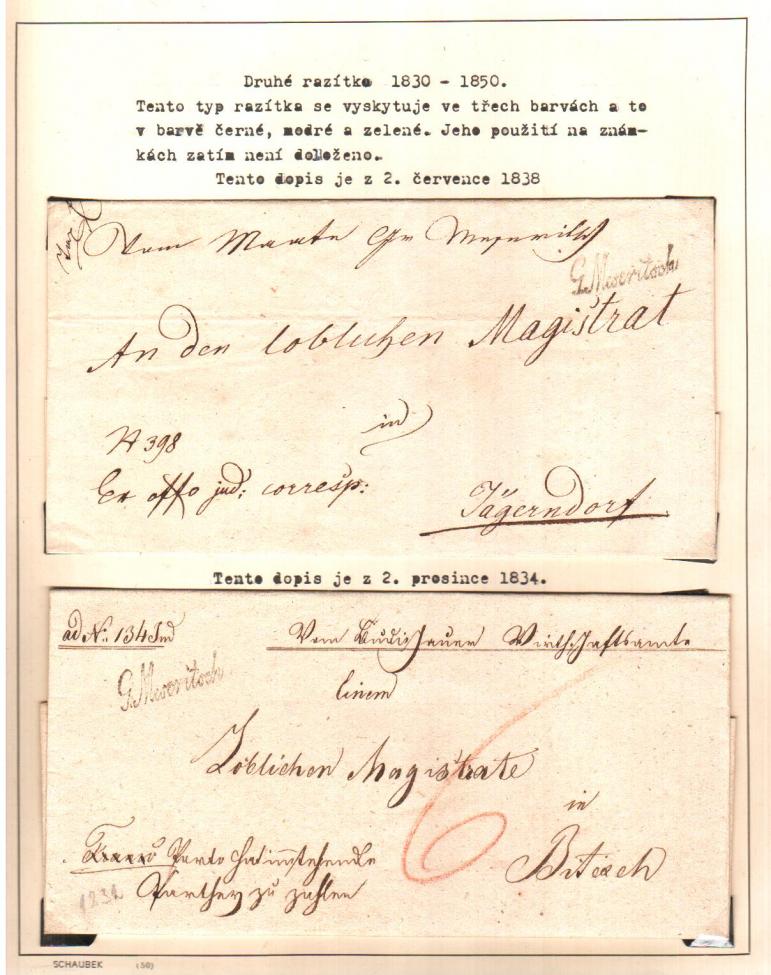 Druhé razítko 1830 - 1850.
Tento typ razítka se vyskytuje ve třech barvách a to
v barvě černé, modré a zelené. Jeho použití na znám-
kách zatím není doloženo.
Tento dopis je z 2. července 1838
Vom Gr
G. Meseritsch
An den loblichen Magistrat
N 398
in
Ex offo jud: corresp:
Jägerndorf
Tento dopis je z 2. prosince 1834.
ad No: 134 Jud
Vom Budischauer Wirthschaftsamte
G. Meseritsch
Einem
6
Löblichen Magistrate
in
Porto hat
Bitesch
Parthey zu zahlen
SCHAUBEK (50)